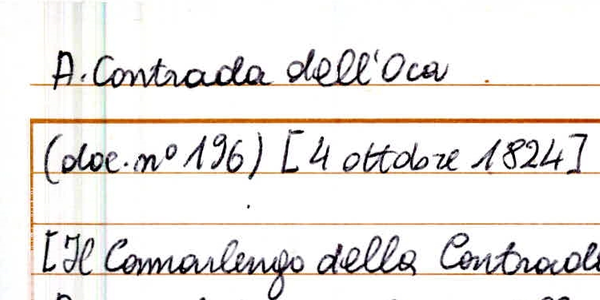 A. Contrada dell'Oca
(doc. nº 196) [4 ottobre 1824]
[Il Camarlengo della